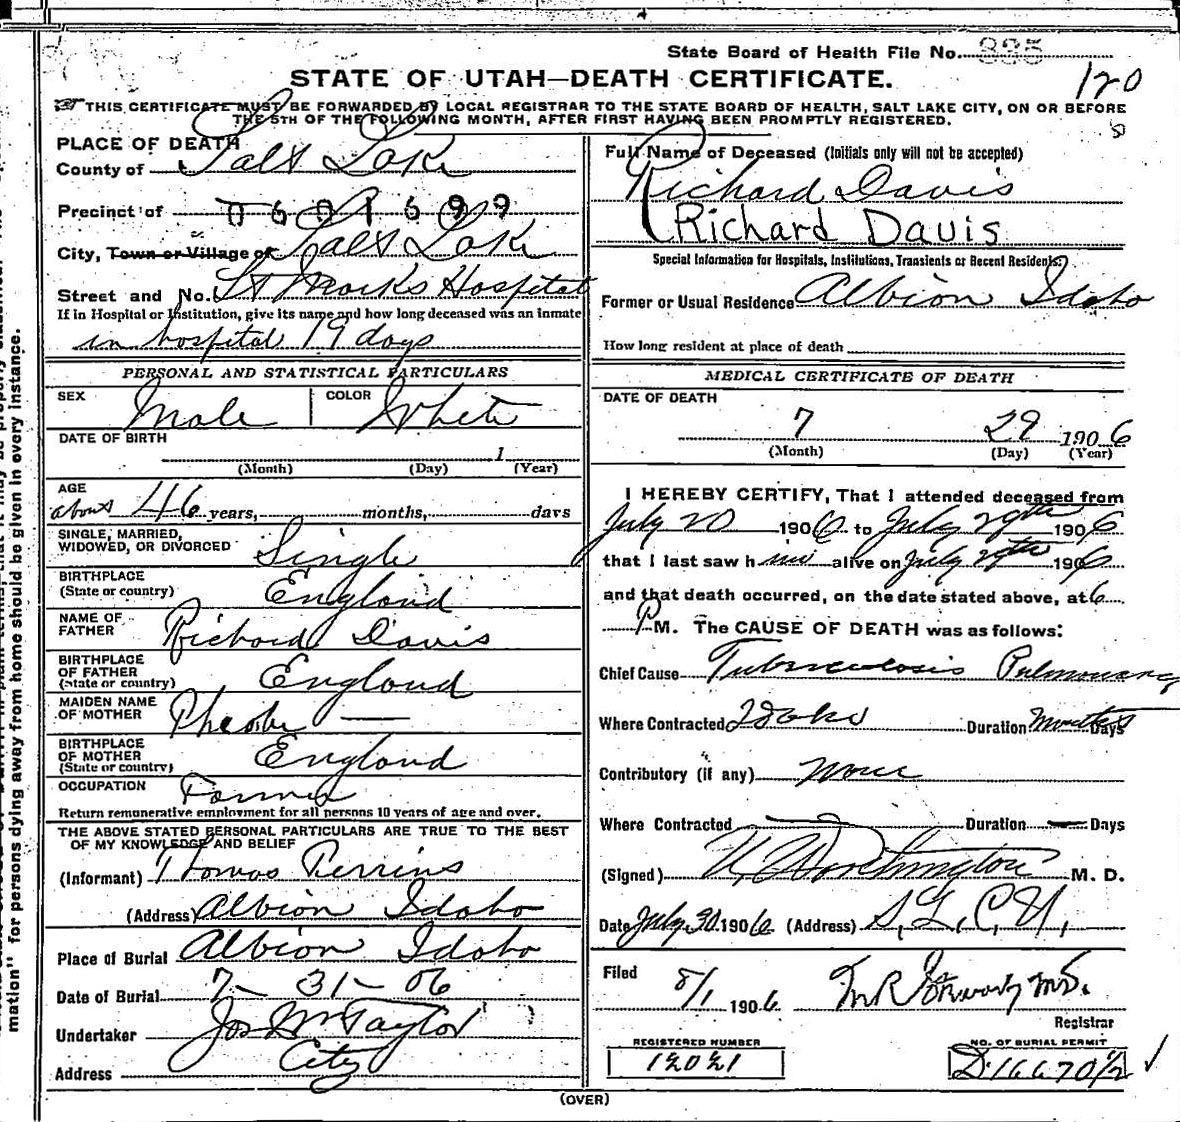 State Board of Health File No. 885
STATE OF UTAH—DEATH CERTIFICATE.
120
THIS CERTIFICATE MUST BE FORWARDED BY LOCAL REGISTRAR TO THE STATE BOARD OF HEALTH, SALT LAKE CITY, ON OR BEFORE
THE 5TH OF THE FOLLOWING MONTH, AFTER FIRST HAVING BEEN PROMPTLY REGISTERED.
PLACE OF DEATH
County of Salt Lake
Precinct of 0601699
City, Town or Village of Salt Lake
Street and No. St Marks Hospital
If in Hospital or Institution, give its name and how long deceased was an inmate
in hospital 19 days
PERSONAL AND STATISTICAL PARTICULARS
SEX Male COLOR White
DATE OF BIRTH
1
(Month) (Day) (Year)
AGE
about 46 years, months, days
SINGLE, MARRIED,
WIDOWED, OR DIVORCED Single
BIRTHPLACE
(State or country) England
NAME OF
FATHER Richard Davis
BIRTHPLACE
OF FATHER
(State or country) England
MAIDEN NAME
OF MOTHER Pheobe —
BIRTHPLACE
OF MOTHER
(State or country) England
OCCUPATION Farmer
Return remunerative employment for all persons 10 years of age and over.
THE ABOVE STATED PERSONAL PARTICULARS ARE TRUE TO THE BEST
OF MY KNOWLEDGE AND BELIEF
(Informant) Thomas Perrins
(Address) Albion Idaho
Place of Burial Albion Idaho
Date of Burial 7 - 31 - 06
Undertaker Jos Wm Taylor
Address City
Full Name of Deceased (Initials only will not be accepted)
Richard Davis
Richard Davis
Special Information for Hospitals, Institutions, Transients or Recent Residents:
Former or Usual Residence Albion Idaho
How long resident at place of death
MEDICAL CERTIFICATE OF DEATH
DATE OF DEATH
7 29 1906
(Month) (Day) (Year)
I HEREBY CERTIFY, That I attended deceased from
July 20 1906 to July 29th 1906
that I last saw him alive on July 29th 1906
and that death occurred, on the date stated above, at 6
P M. The CAUSE OF DEATH was as follows:
Chief Cause Tuberculosis Pulmonary
Where Contracted Idaho Duration Months Days
Contributory (if any) None
Where Contracted — Duration — Days
(Signed) Worthington M. D.
Date July 30 1906 (Address) S. L. C. U.,
Filed 8/1 1906
Registrar
REGISTERED NUMBER
12021
NO. OF BURIAL PERMIT
D-16670½ ✓
(OVER)
mation" for persons dying away from home should be given in every instance.